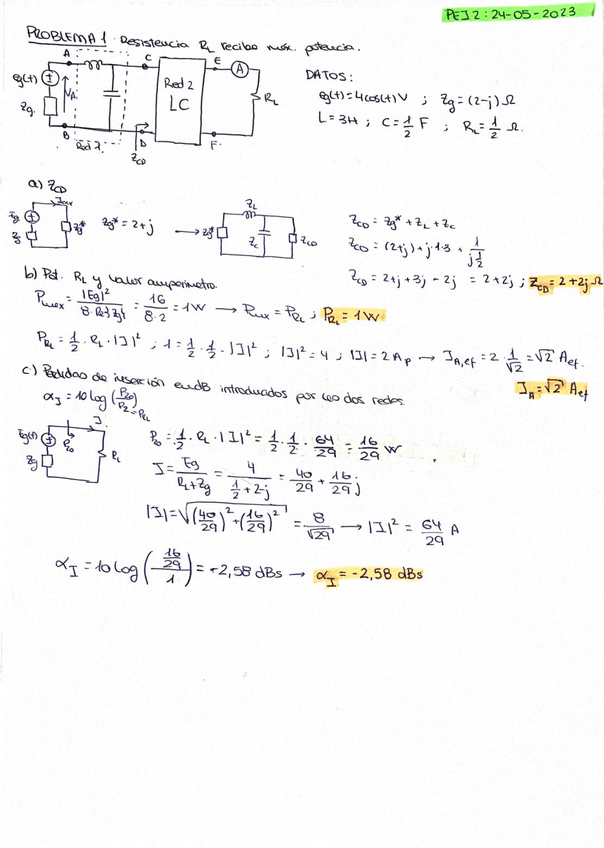 PEI 2: 24-05-2023
PROBLEMA 1 Resistencia RL recibe máx. potencia.
A
C
E
A
eg(t)
VA
Zg
Red 2
LC
RL
B
Red 1
D
F
ZCD
DATOS:
eg(t) = 4cos(t) V ; Zg = (2-j) Ω
L = 3H ; C = 1/2 F ; RL = 1/2 Ω.
a) ZCD
Eg
Zg
Zg*
Zg* = 2+j
Zg*
ZL
Zc
ZCD
ZCD = Zg* + ZL + Zc
ZCD = (2+j) + j·1·3 + 1/(j 1/2)
ZCD = 2+j + 3j - 2j = 2+2j ; ZCD = 2+2j Ω
b) Pot. RL y valor amperímetro.
Pmax = |Eg|²/(8·Re{Zg}) = 16/(8·2) = 1W → Pmax = PRL ; PRL = 1W
PRL = 1/2 · RL · |I|² ; 1 = 1/2 · 1/2 · |I|² ; |I|² = 4 ; |I| = 2 Ap → IA,ef = 2 · 1/√2 = √2 Aef.
IA = √2 Aef
c) Pérdidas de inserción en dB introducidas por las dos redes.
αI = 10 log (P20/P2 = PRL)
Eg(t)
P20
I
Zg
RL
P20 = 1/2 · RL · |I|² = 1/2 · 1/2 · 64/29 = 16/29 W
I = Eg/(RL+Zg) = 4/(1/2 + 2-j) = 40/29 + 16/29 j
|I| = √((40/29)² + (16/29)²) = 8/√29 → |I|² = 64/29 A
αI = 10 log ((16/29)/1) = -2,58 dBs → αI = -2,58 dBs